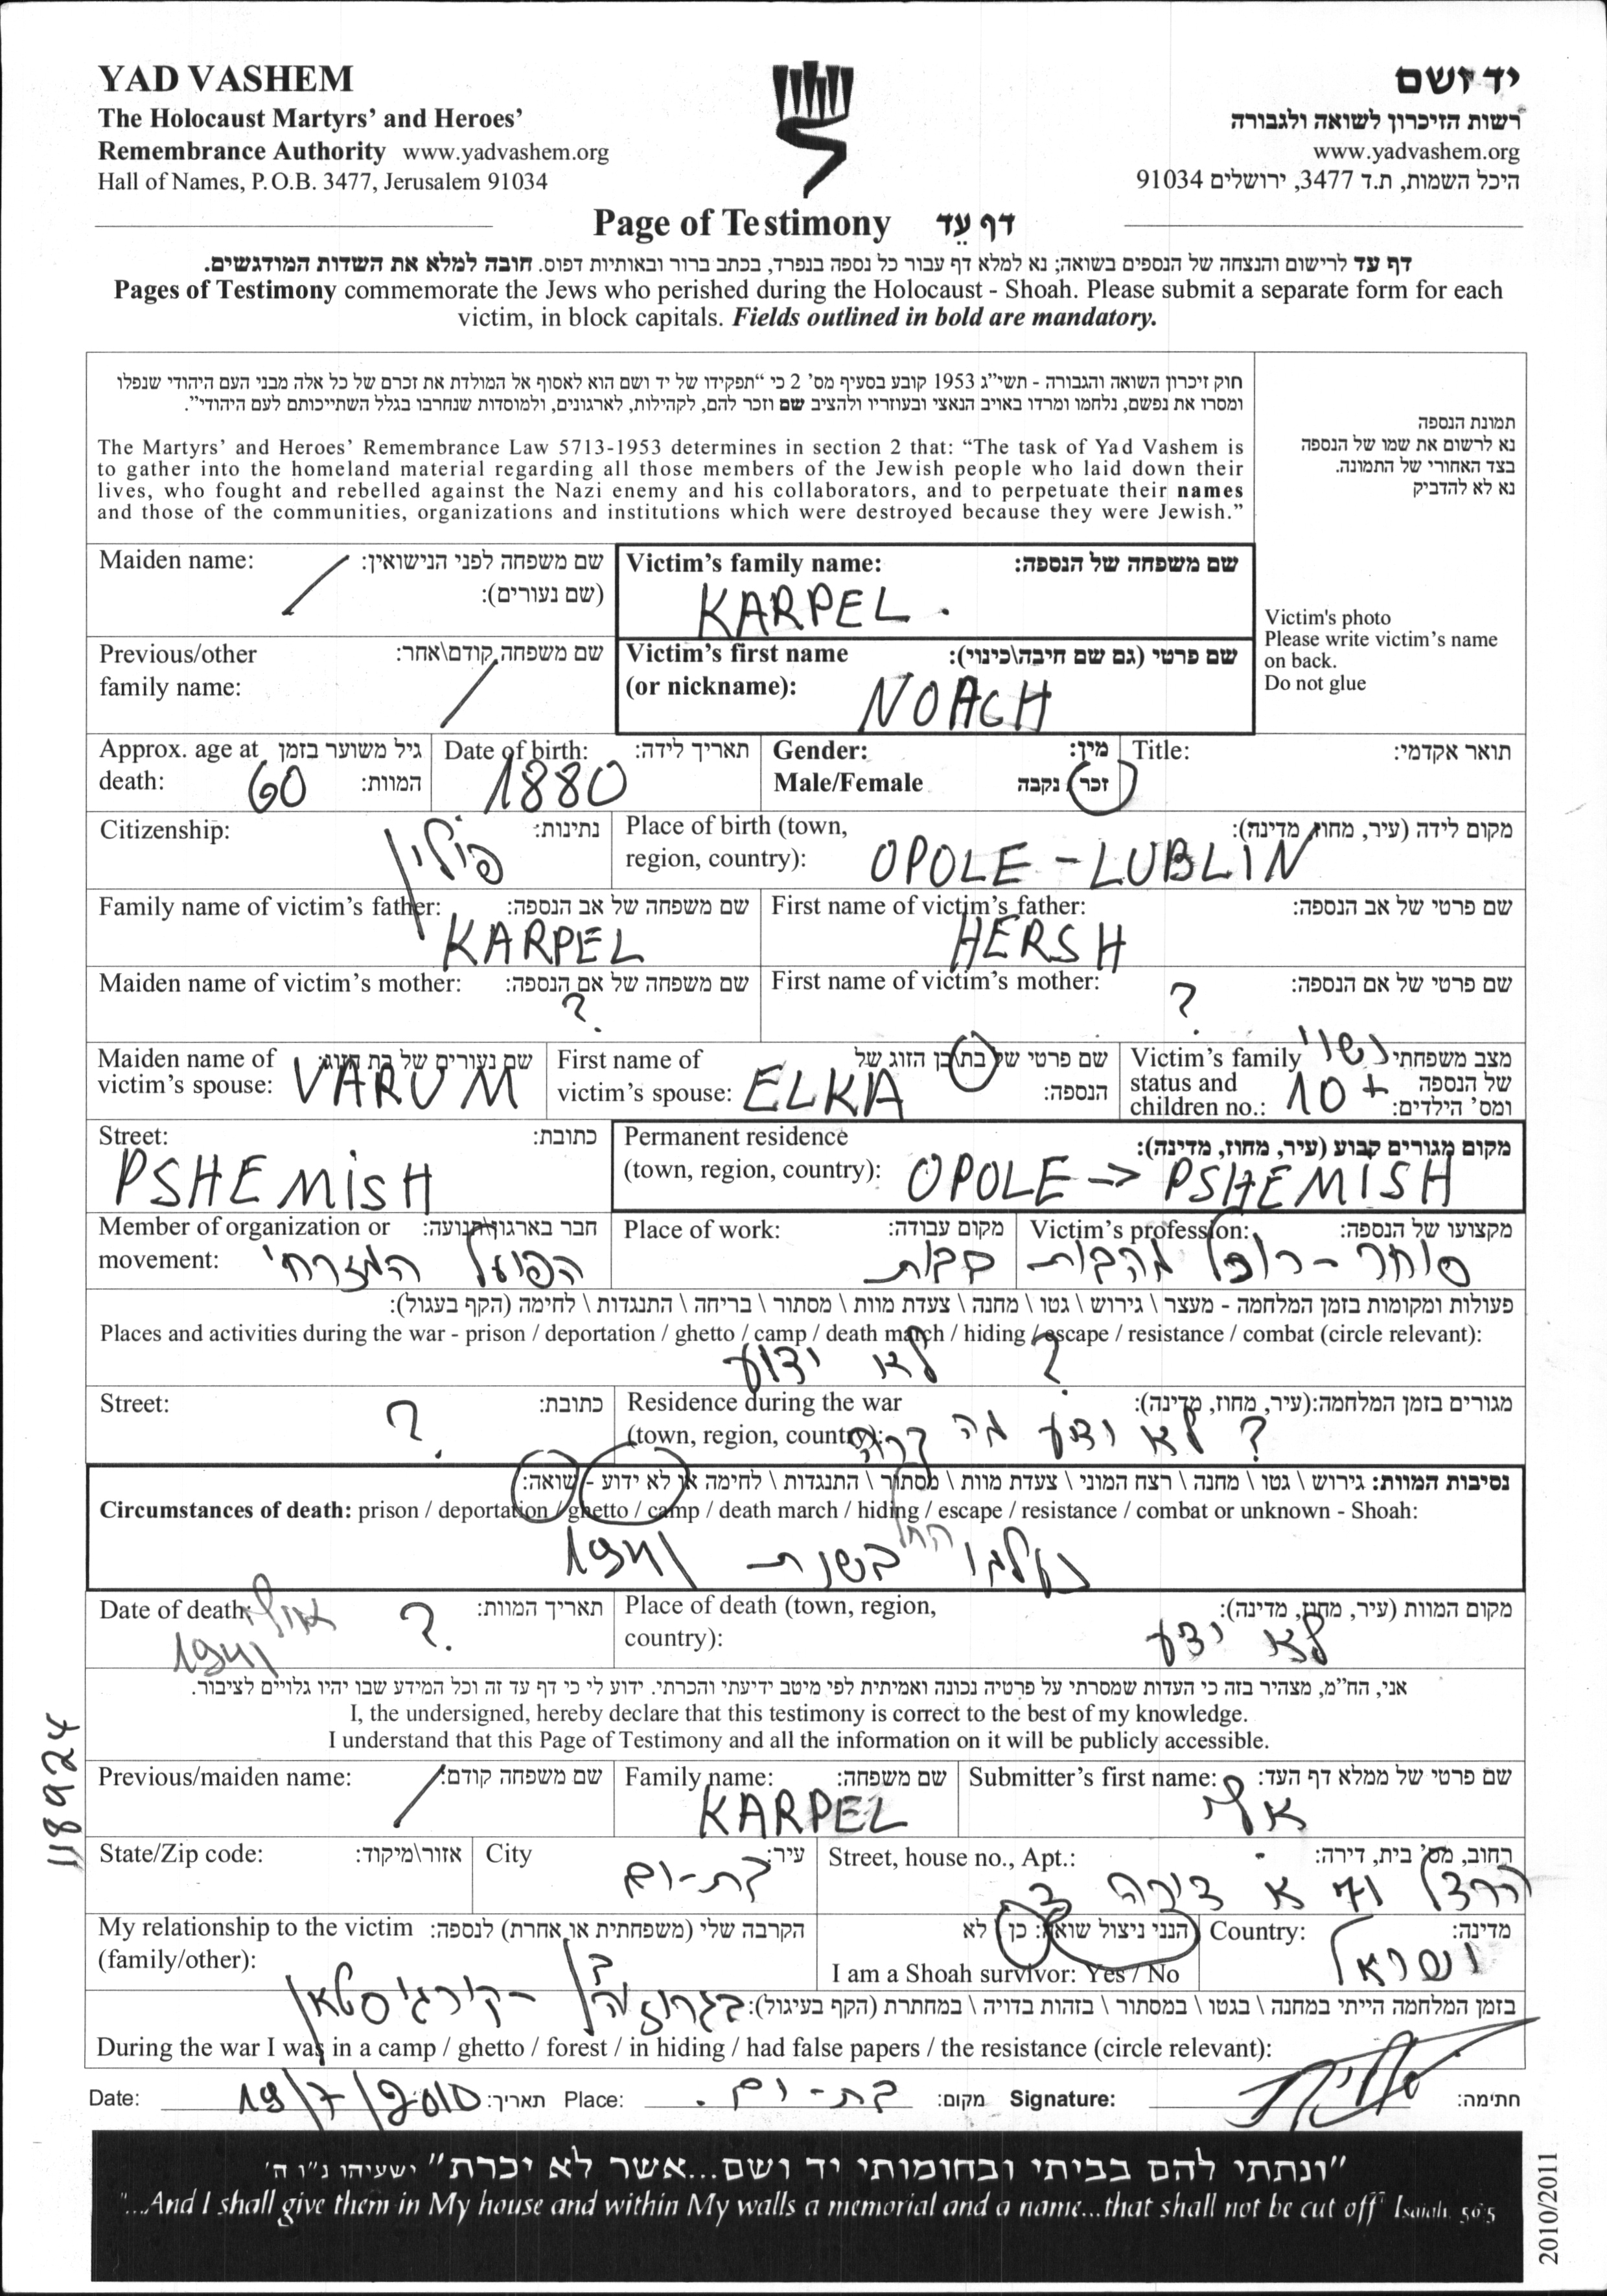 YAD VASHEM
The Holocaust Martyrs' and Heroes'
Remembrance Authority www.yadvashem.org
Hall of Names, P.O.B. 3477, Jerusalem 91034
יד ושם
רשות הזיכרון לשואה ולגבורה
www.yadvashem.org
היכל השמות, ת.ד 3477, ירושלים 91034
Page of Testimony דף עֵד
דף עד לרישום והנצחה של הנספים בשואה; נא למלא דף עבור כל נספה בנפרד, בכתב ברור ובאותיות דפוס. חובה למלא את השדות המודגשים.
Pages of Testimony commemorate the Jews who perished during the Holocaust - Shoah. Please submit a separate form for each
victim, in block capitals. Fields outlined in bold are mandatory.
חוק זיכרון השואה והגבורה - תשי"ג 1953 קובע בסעיף מס' 2 כי "תפקידו של יד ושם הוא לאסוף אל המולדת את זכרם של כל אלה מבני העם היהודי שנפלו
ומסרו את נפשם, נלחמו ומרדו באויב הנאצי ובעוזריו ולהציב שם וזכר להם, לקהילות, לארגונים, ולמוסדות שנחרבו בגלל השתייכותם לעם היהודי".
The Martyrs' and Heroes' Remembrance Law 5713-1953 determines in section 2 that: "The task of Yad Vashem is
to gather into the homeland material regarding all those members of the Jewish people who laid down their
lives, who fought and rebelled against the Nazi enemy and his collaborators, and to perpetuate their names
and those of the communities, organizations and institutions which were destroyed because they were Jewish."
תמונת הנספה
נא לרשום את שמו של הנספה
בצד האחורי של התמונה.
נא לא להדביק
Victim's photo
Please write victim's name
on back.
Do not glue
Maiden name: שם משפחה לפני הנישואין:
(שם נעורים):
/
Victim's family name: שם משפחה של הנספה:
KARPEL.
Previous/other שם משפחה קודם\אחר:
family name: /
Victim's first name שם פרטי (גם שם חיבה\כינוי):
(or nickname): NOACH
Approx. age at גיל משוער בזמן
death: 60 המוות:
Date of birth: תאריך לידה:
1880
Gender: מין:
Male/Female זכר / נקבה
Title: תואר אקדמי:
Citizenship: נתינות:
פולין
Place of birth (town, מקום לידה (עיר, מחוז, מדינה):
region, country): OPOLE - LUBLIN
Family name of victim's father: שם משפחה של אב הנספה:
KARPEL
First name of victim's father: שם פרטי של אב הנספה:
HERSH
Maiden name of victim's mother: שם משפחה של אם הנספה:
?
First name of victim's mother: שם פרטי של אם הנספה:
?
Maiden name of שם נעורים של בת הזוג:
victim's spouse: VARUM
First name of שם פרטי של בת\בן הזוג של
victim's spouse: ELKA הנספה:
Victim's family מצב משפחתי נשוי
status and של הנספה
children no.: 10+ ומס' הילדים:
Street: כתובת:
PSHEMISH
Permanent residence מקום מגורים קבוע (עיר, מחוז, מדינה):
(town, region, country): OPOLE -> PSHEMISH
Member of organization or חבר בארגון\תנועה:
movement: הפועל המזרחי
Place of work: מקום עבודה:
Victim's profession: מקצועו של הנספה:
סוחר - רוכל
פעולות ומקומות בזמן המלחמה - מעצר \ גירוש \ גטו \ מחנה \ צעדת מוות \ מסתור \ בריחה \ התנגדות \ לחימה (הקף בעגול):
Places and activities during the war - prison / deportation / ghetto / camp / death march / hiding / escape / resistance / combat (circle relevant):
? לא ידוע
Street: כתובת:
?
Residence during the war מגורים בזמן המלחמה:(עיר, מחוז, מדינה):
(town, region, country):
? לא ידוע מה קרה
נסיבות המוות: גירוש \ גטו \ מחנה \ רצח המוני \ צעדת מוות \ מסתור \ התנגדות \ לחימה או לא ידוע - שואה:
Circumstances of death: prison / deportation / ghetto / camp / death march / hiding / escape / resistance / combat or unknown - Shoah:
נעלמו החל בשנת 1941
Date of death: תאריך המוות:
? אולי
1941
Place of death (town, region, מקום המוות (עיר, מחוז, מדינה):
country): לא ידוע
אני, הח"מ, מצהיר בזה כי העדות שמסרתי על פרטיה נכונה ואמיתית לפי מיטב ידיעתי והכרתי. ידוע לי כי דף עד זה וכל המידע שבו יהיו גלויים לציבור.
I, the undersigned, hereby declare that this testimony is correct to the best of my knowledge.
I understand that this Page of Testimony and all the information on it will be publicly accessible.
118924
Previous/maiden name: שם משפחה קודם:
/
Family name: שם משפחה:
KARPEL
Submitter's first name: שם פרטי של ממלא דף העד:
State/Zip code: אזור\מיקוד:
City עיר:
בת-ים
Street, house no., Apt.: רחוב, מס' בית, דירה:
הרצל
Country: מדינה:
ישראל
My relationship to the victim הקרבה שלי (משפחתית או אחרת) לנספה:
(family/other): בן
הנני ניצול שואה: כן \ לא
I am a Shoah survivor: Yes / No
בזמן המלחמה הייתי במחנה \ בגטו \ במסתור \ בזהות בדויה \ במחתרת (הקף בעיגול):
קירגיסטאן
During the war I was in a camp / ghetto / forest / in hiding / had false papers / the resistance (circle relevant):
Date: 19/7/2010 תאריך: Place: בת-ים. מקום: Signature: חתימה:
"ונתתי להם בביתי ובחומותי יד ושם...אשר לא יכרת" ישעיהו נ"ו ה'
"...And I shall give them in My house and within My walls a memorial and a name...that shall not be cut off" Isaiah 56:5
2010/2011